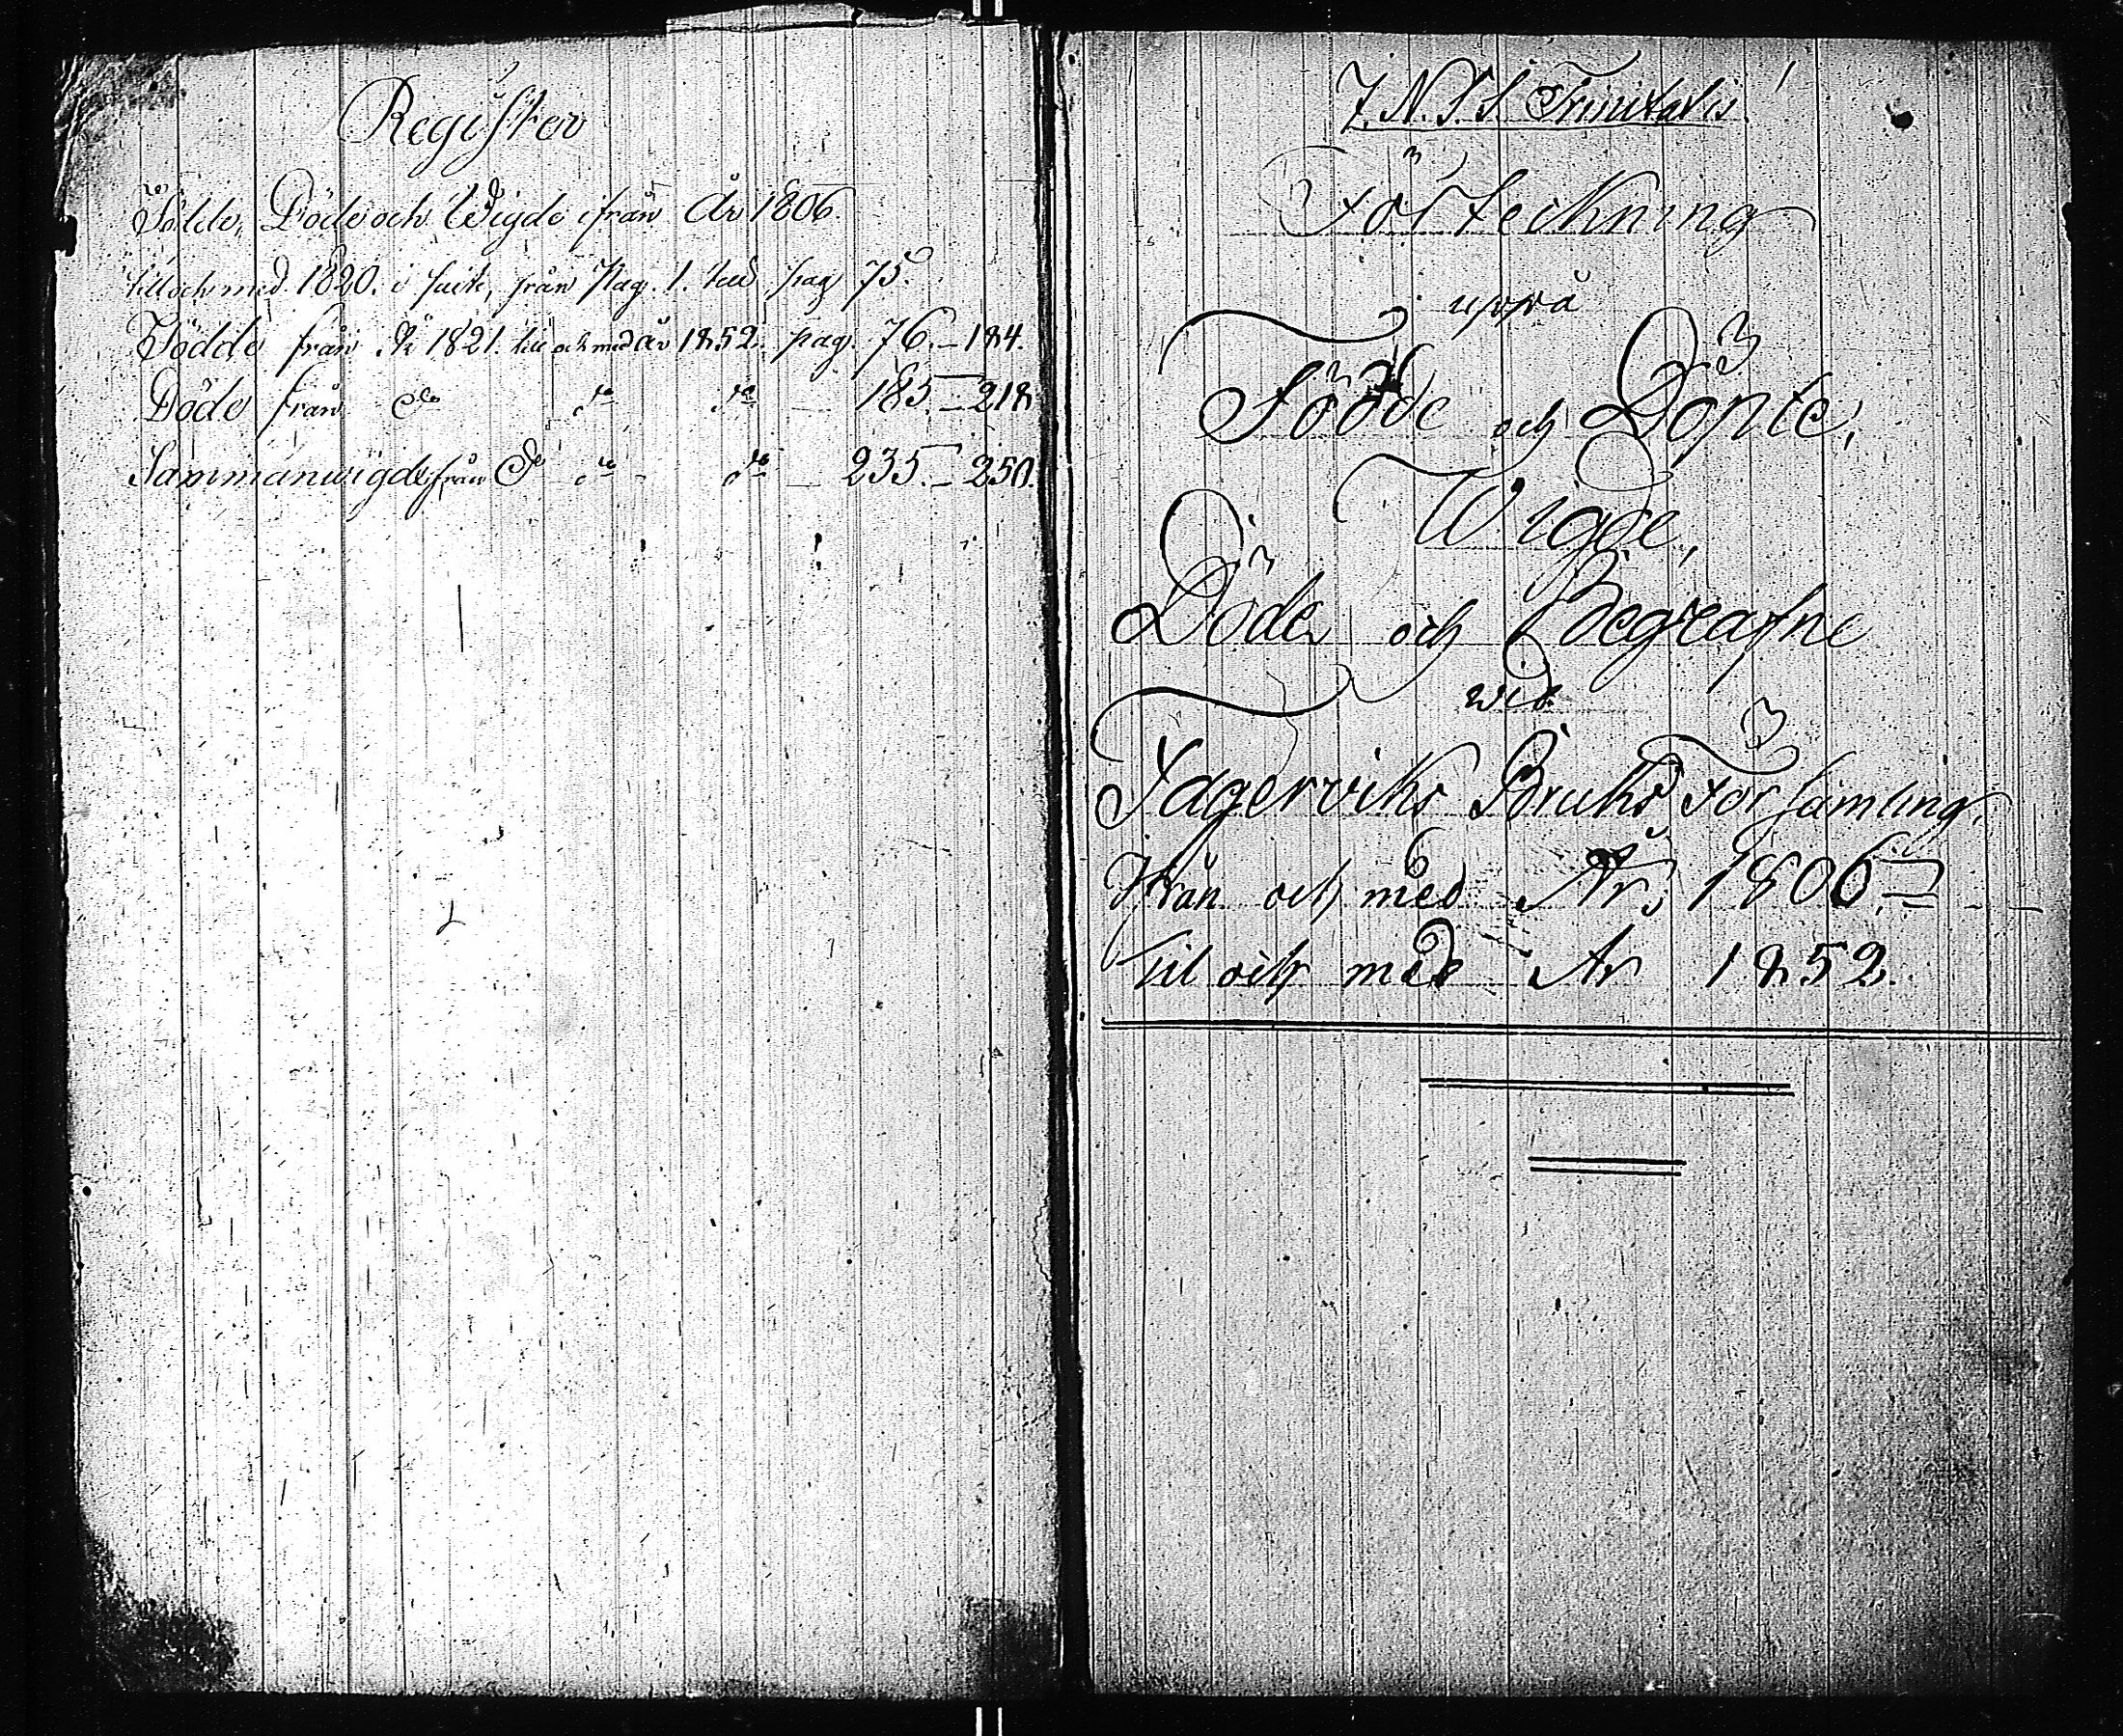 Register
Födde, Döde och Wigde ifrån År 1806
till och med 1820. i suite, från Pag. 1. till pag 75.
Födde från År 1821. till och med år 1852. pag. 76.–184.
Döde från do do do – 185.–218
Sammanwigde från do do – do – 235.–250.
J. N. S. S. Trinitatis!
Förteckning
uppå
Födde och Döpte,
Wigde,
Döde och Begrafne
wid
Fagerviks Bruks Församling.
Ifrån och med År 1806.
Til och med År 1852.